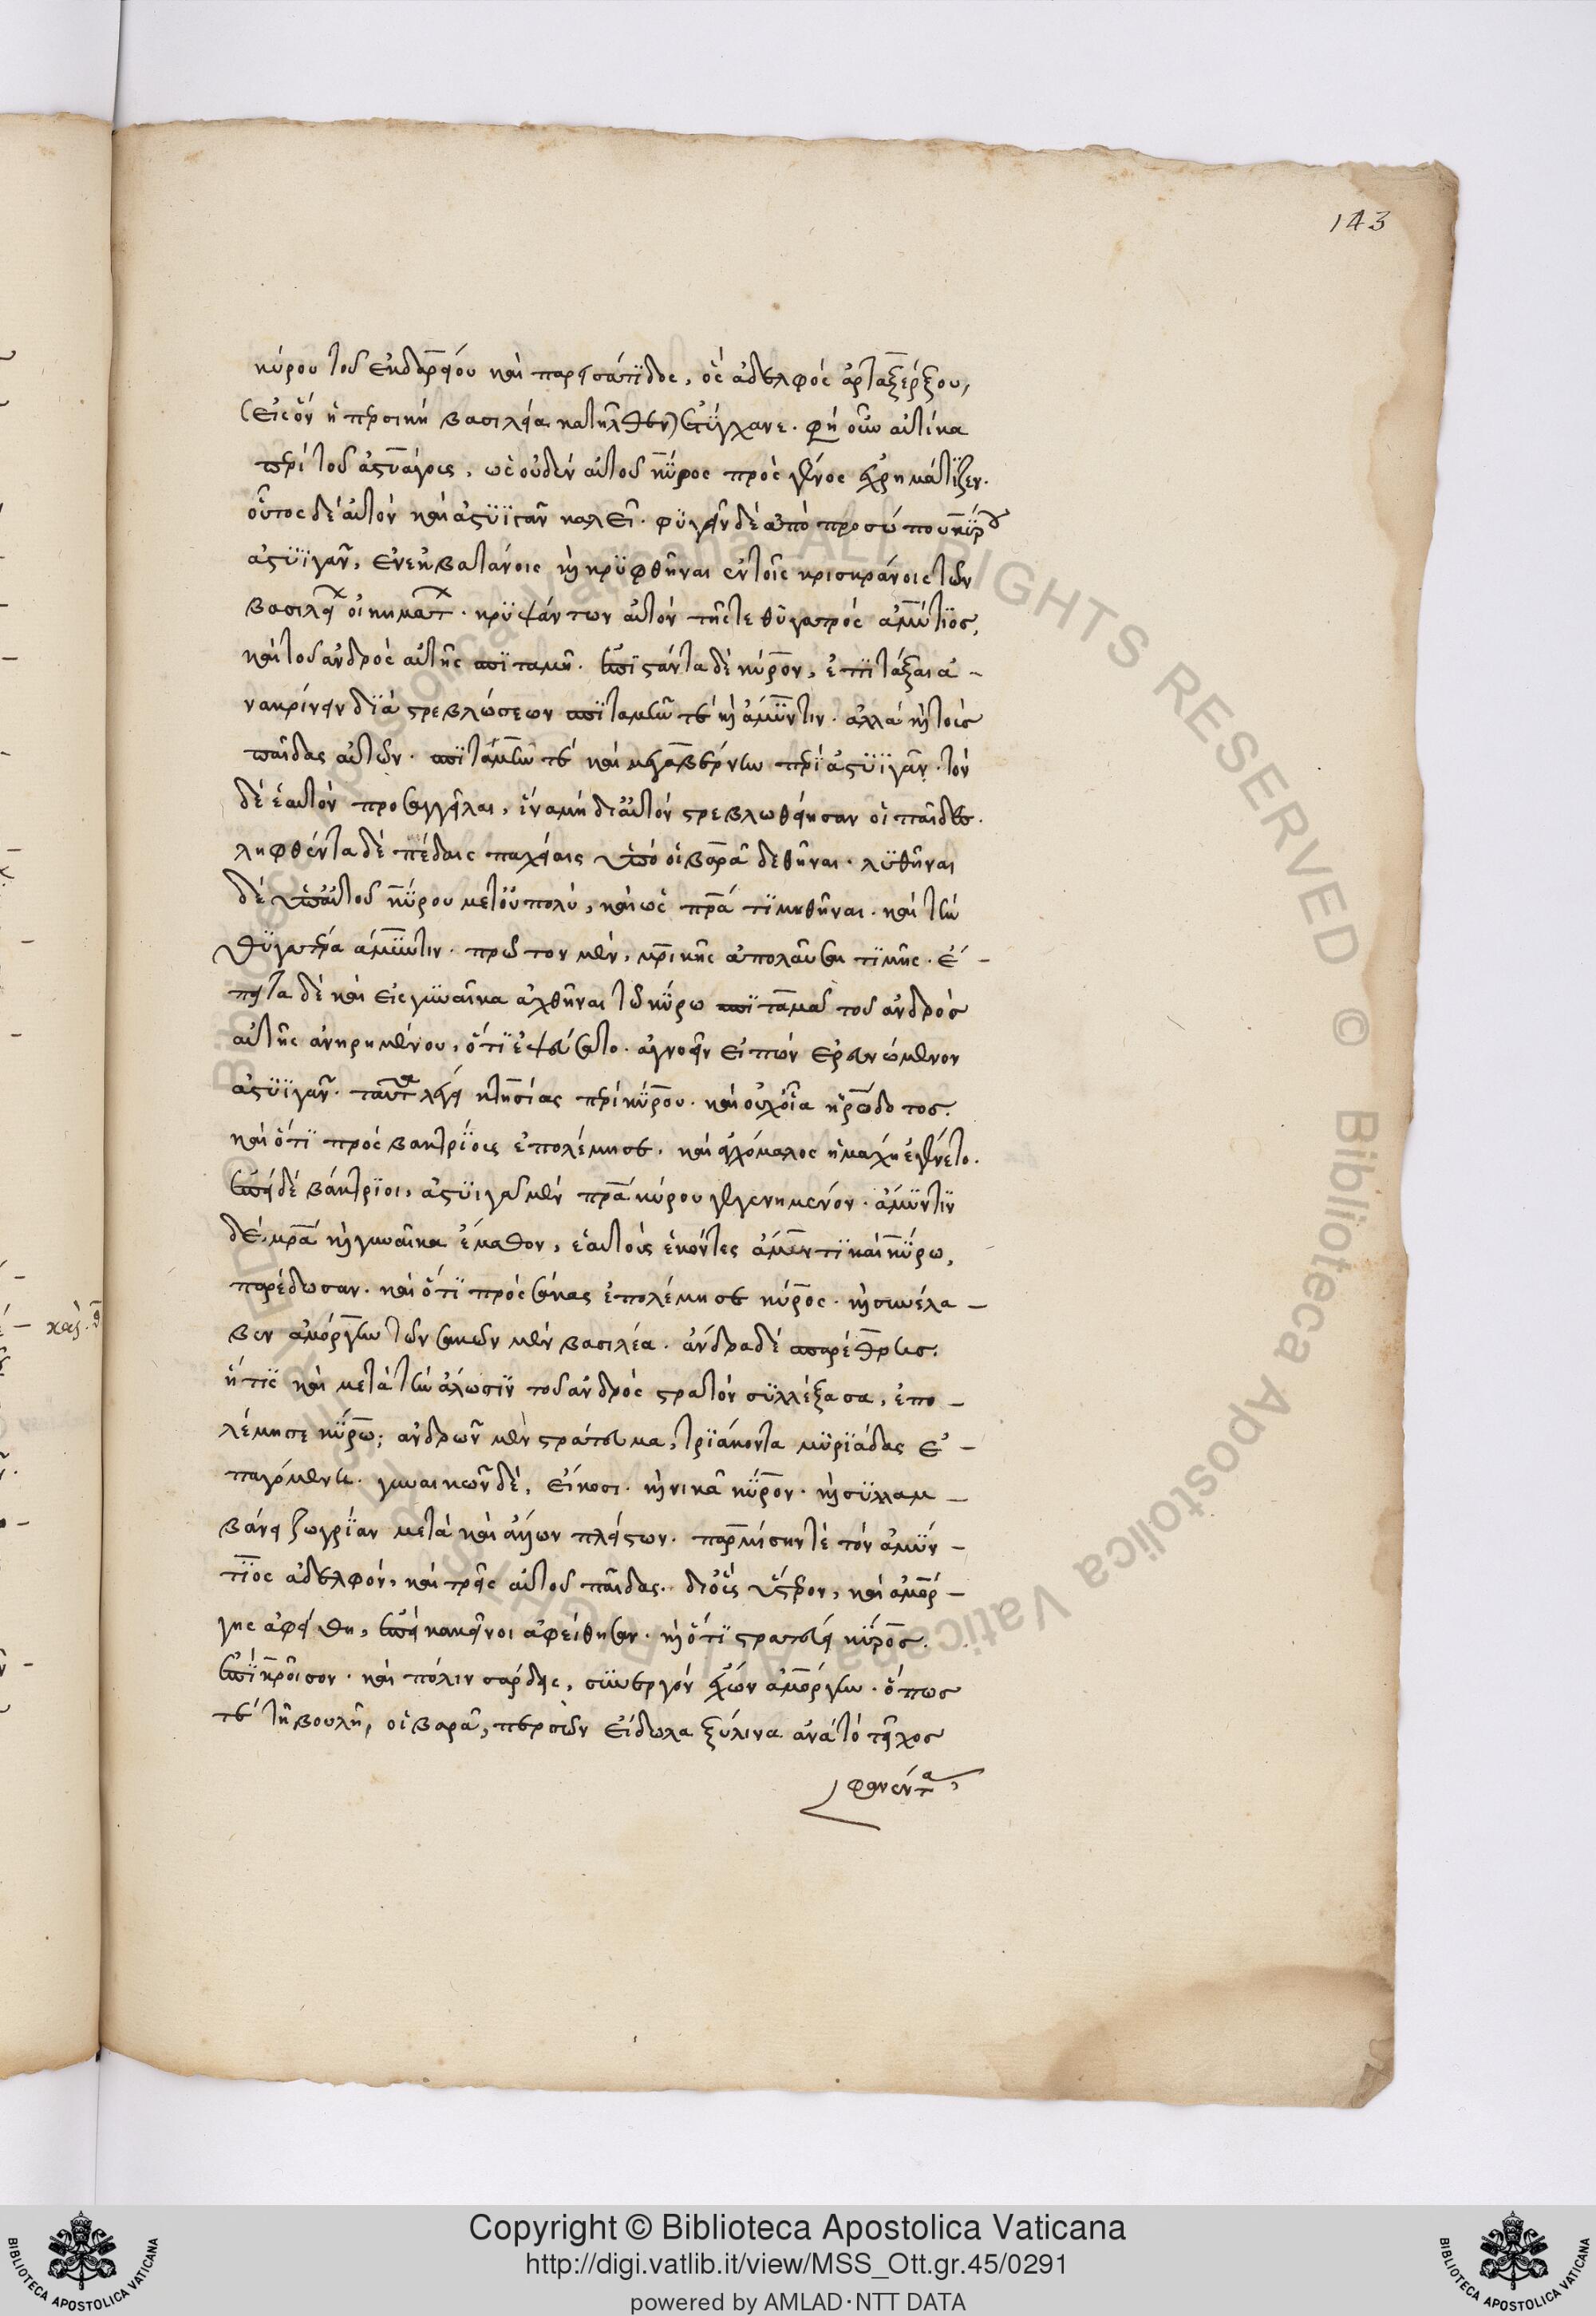 143
κύρου τοῦ ἐκ δαρείου καὶ παρυσάτιδος, ὃς ἀδελφὸς ἀρταξέρξου,
(εἰς ὃν ἡ περσικὴ βασιλεία κατῆλθεν) ἐτύγχανε. φησὶν οὖν αὐτίκα
περὶ τοῦ ἀστυάγους, ὡς οὐδὲν αὐτοῦ κῦρος πρὸς γένος ἐχρημάτιζεν.
οὗτος δὲ αὐτὸν καὶ ἀστυΐγαν καλεῖ. φυγεῖν δὲ ἀπὸ προσώπου κύρου
ἀστυΐγαν, ἐν ἐκβατάνοις καὶ κρυφθῆναι ἐν τοῖς κρισκράνοις τῶν
βασιλείων οἰκημάτων. κρυψάντων αὐτὸν τῆς τε θυγατρὸς ἀμύτιος,
καὶ τοῦ ἀνδρὸς αὐτῆς σπιτάμα. ἐπιστάντα δὲ κύρον, ἐπιτάξαι ἀ-
νακρίνειν διὰ στρεβλώσεων σπιτάμαν τε καὶ ἀμύντιν. ἀλλὰ καὶ τοὺς
παῖδας αὐτῶν. σπιτάκην τε καὶ μεγαβέρνην περὶ ἀστυΐγαν. τὸν
δὲ ἑαυτὸν προσαγγεῖλαι, ἵνα μὴ δι' αὐτὸν στρεβλωθείησαν οἱ παῖδες.
ληφθέντα δὲ πέδαις παχείαις ὑπὸ οἰβάρα δεθῆναι. λυθῆναι
δὲ ὑπ' αὐτοῦ κύρου μετ' οὐ πολὺ, καὶ ὡς πατέρα τιμηθῆναι. καὶ τὴν
θυγατέρα ἀμύντιν. πρῶτον μὲν, μητρικῆς ἀπολαῦσαι τιμῆς. ἔ-
πειτα δὲ καὶ εἰς γυναῖκα ἀχθῆναι τῶ κύρω σπιτάμα τοῦ ἀνδρὸς
αὐτῆς ἀνῃρημένου, ὅτι ἐψεύσατο. ἀγνοεῖν εἰπὼν ἐρευνώμενον
ἀστυΐγαν. ταῦτα λέγει κτησίας περὶ κύρου. καὶ οὐχ οἷα ἡρόδοτος.
καὶ ὅτι πρὸς βακτρίους ἐπολέμησε. καὶ ἀγχώμαλος ἡ μάχη ἐγένετο.
ἐπεὶ δὲ βάκτριοι, ἀστυΐγαν μὲν πατέρα κύρου γεγενημένον. ἀμύντιν
δὲ μητέρα καὶ γυναῖκα ἔμαθον, ἑαυτοὺς ἑκόντες ἀμύντι καὶ κύρω,
παρέδωσαν. καὶ ὅτι πρὸς σάκας ἐπολέμησε κύρος. καὶ συνέλα-
βεν ἀμόργην τῶν σακῶν μὲν βασιλέα. ἄνδρα δὲ σπαρέθρης.
ἥτις καὶ μετὰ τὴν ἅλωσιν τοῦ ἀνδρὸς στρατὸν συλλέξασα, ἐπο-
λέμησε κύρω; ἀνδρῶν μὲν στράτευμα, τριάκοντα μυριάδας ἐ-
παγομένη. γυναικῶν δὲ, εἴκοσι. καὶ νικᾶ κύρον. καὶ συλλαμ-
βάνει ζωγρίαν μετὰ καὶ ἄλλων πλείστων. παρμίσην τὲ τὸν ἀμύν-
τιος ἀδελφὸν, καὶ τρεῖς αὐτοῦ παῖδας. δι' οὓς ὕστερον, καὶ ἀμόρ-
γης ἀφείθη, ἐπεὶ κἀκεῖνοι ἀφείθησαν. καὶ ὅτι στρατεύει κύρος.
ἐπὶ κροῖσον. καὶ πόλιν σάρδεις, συνεργὸν ἔχων ἀμόργην. ὅπως
τε τῆ βουλῆ, οἰβάρα, περσῶν εἴδωλα ξύλινα ἀνὰ τὸ τεῖχος
φανέντα,
Copyright © Biblioteca Apostolica Vaticana
http://digi.vatlib.it/view/MSS_Ott.gr.45/0291
powered by AMLAD·NTT DATA